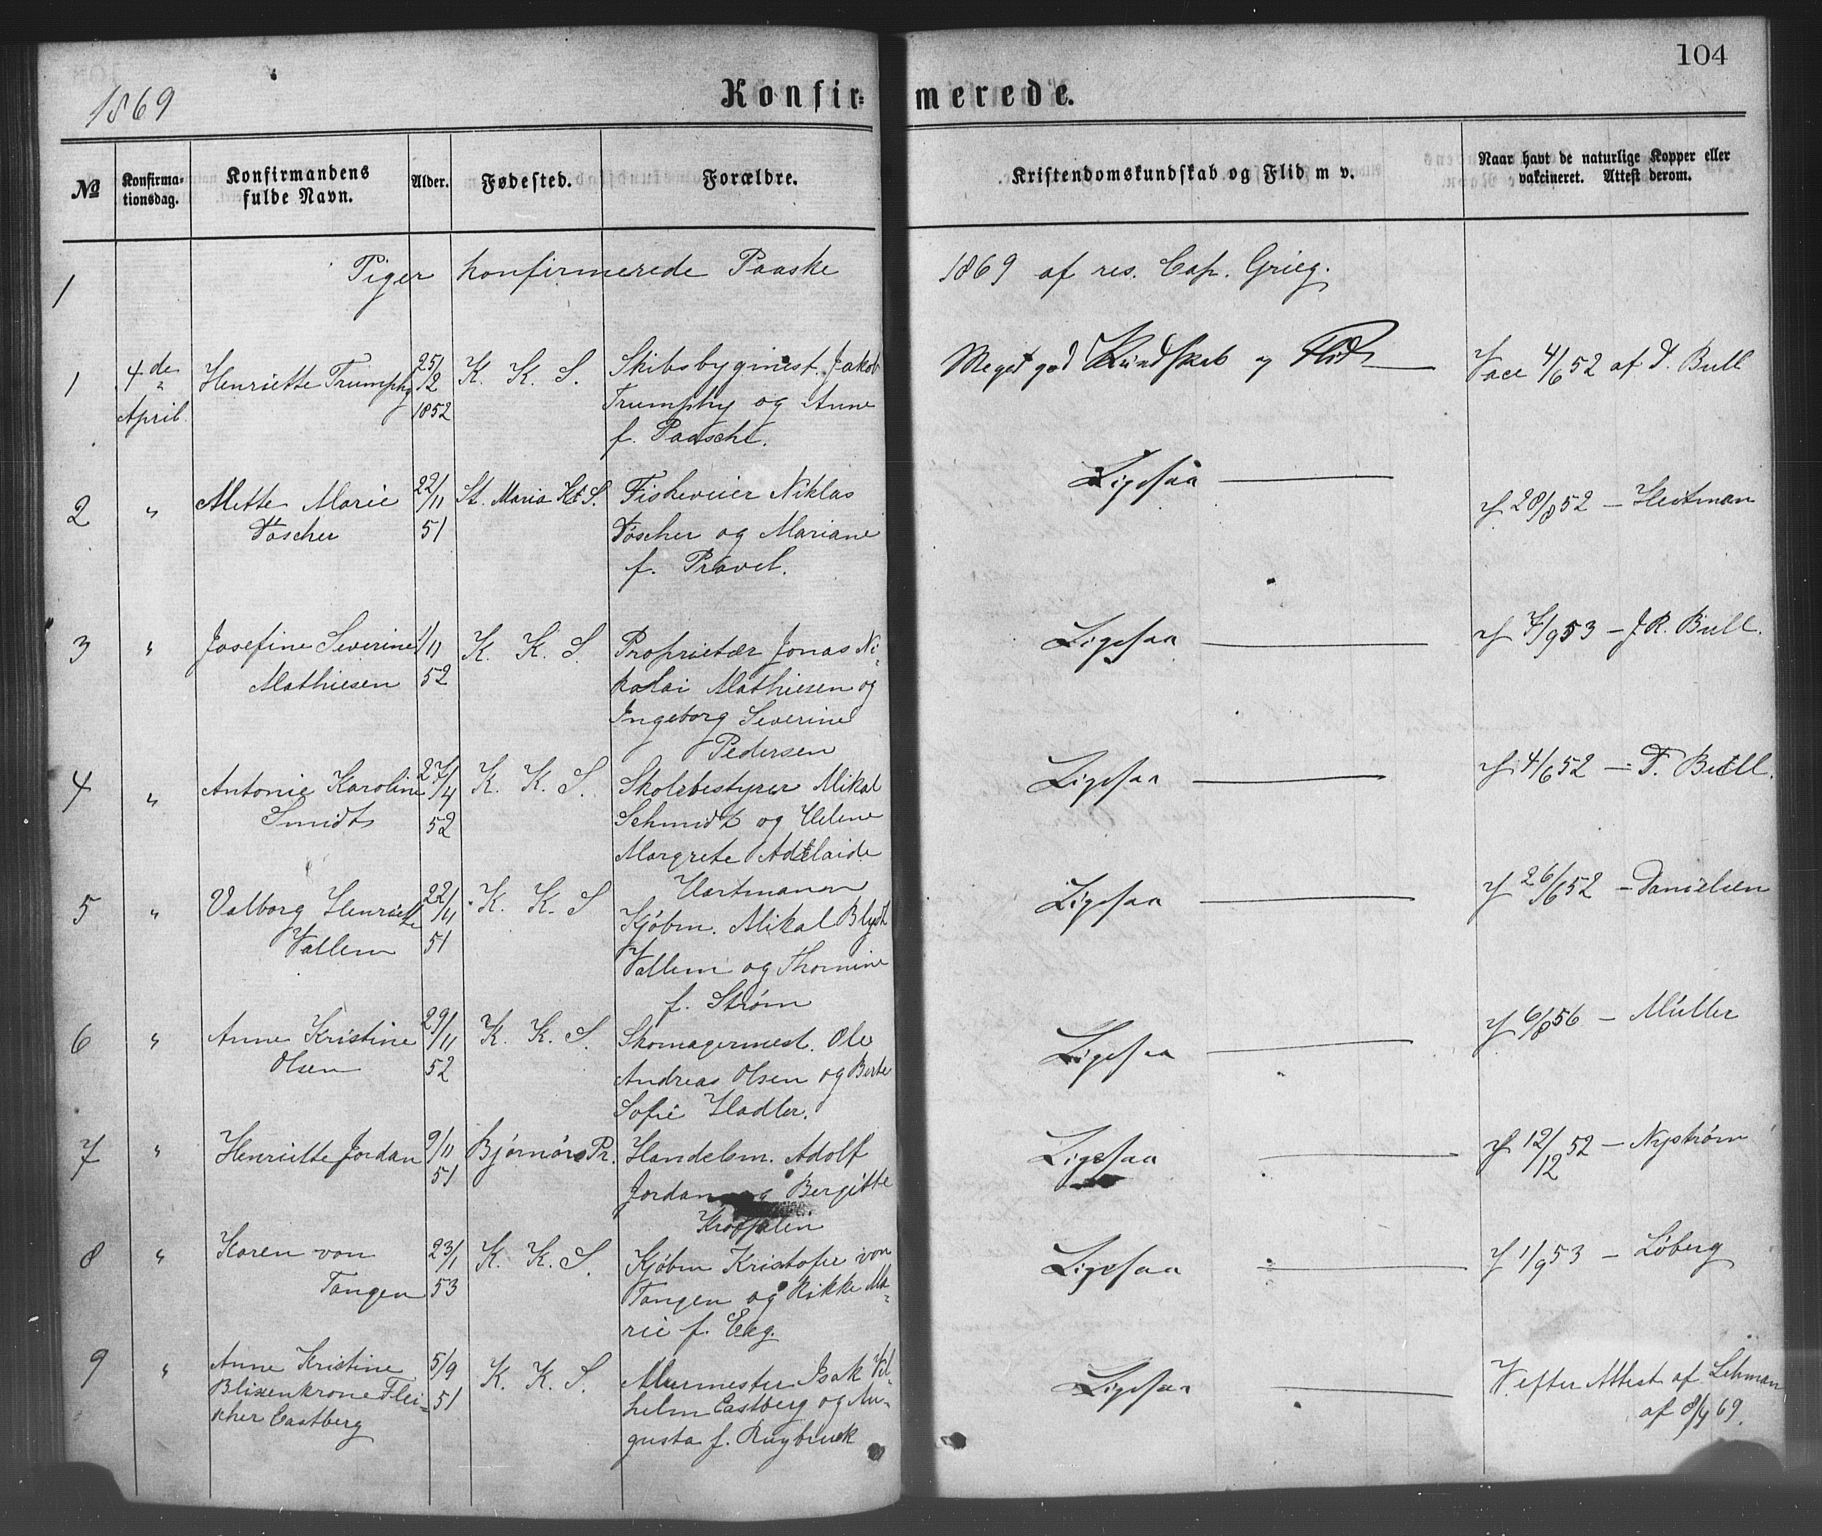 104
1869
Konfirmerede.
No
Konfirmationsdag.
Konfirmandens fulde Navn.
Alder.
Fødested.
Forældre.
Kristendomskundskab og Flid m v.
Naar havt de naturlige Kopper eller vakcineret. Attest derom.
1
Piger konfirmerede Paaske 1869 af res. Cap. Grieg.
1
4de
"
April
Henriette Trumphy
25/2
1852
K. K. S.
Skibsbygmest. Jakob
Trumphy og Anne
f. Paasche.
Meget god Kundskab og Flid
Vacc 4/6 52 af D. Bull
2
"
Mette Marie
Töscher
22/11
51
St. Maria K S.
Fiskeveier Niklas
Töscher og Mariane
f. Pravel.
Ligesaa
V 28/8 52 – Heitman
3
"
Josefine Severine
Mathiesen
1/11
52
K. K. S
Proprietær Jonas Ni-
kolai Mathiesen og
Ingeborg Severine
Pedersen
Ligesaa
V 7/9 53 – J. R. Bull.
4
"
Antonie Karoline
Smidt
27/4
52
K. K. S.
Skolebestyrer Mikal
Schmidt og Helene
Margrete Adelaide
Hartmann
Ligesaa
V 4/6 52 – F. Bull.
5
"
Valborg Henriette
Vallem
22/11
51
K. K. S
Kjøbm. Mikal Blydt
Vallem og Thomine
f. Strøm
Ligesaa
V 26/6 52 – Danielsen
6
"
Anne Kristine
Olsen
29/11
52
K. K. S.
Skomagermest. Ole
Andreas Olsen og Berte
Sofie Hadler.
Ligesaa
V 6/8 56 – Müller
7
"
Henriette Jordan
9/11
51
Bjørnørs Pr.
Handelsm. Adolf
Jordan og Bergitte
Ligesaa
V 12/12 52 – Nystrøm
8
"
Karen von
Tangen
23/1
53
K. K. S.
Kjøbm Kristofer von
Tangen og Rikke Ma-
rie f. Eeg.
Ligesaa
V 1/9 53 – Løberg
9
"
Anne Kristine
Blixenkrone Flei-
scher Eastberg
5/9
51
K. K. S.
Murmester Isak Vil-
helm Eastberg og Au-
gusta f. Ruybruck
Ligesaa
V. efter Attest af Lehman
af 8/4 69.